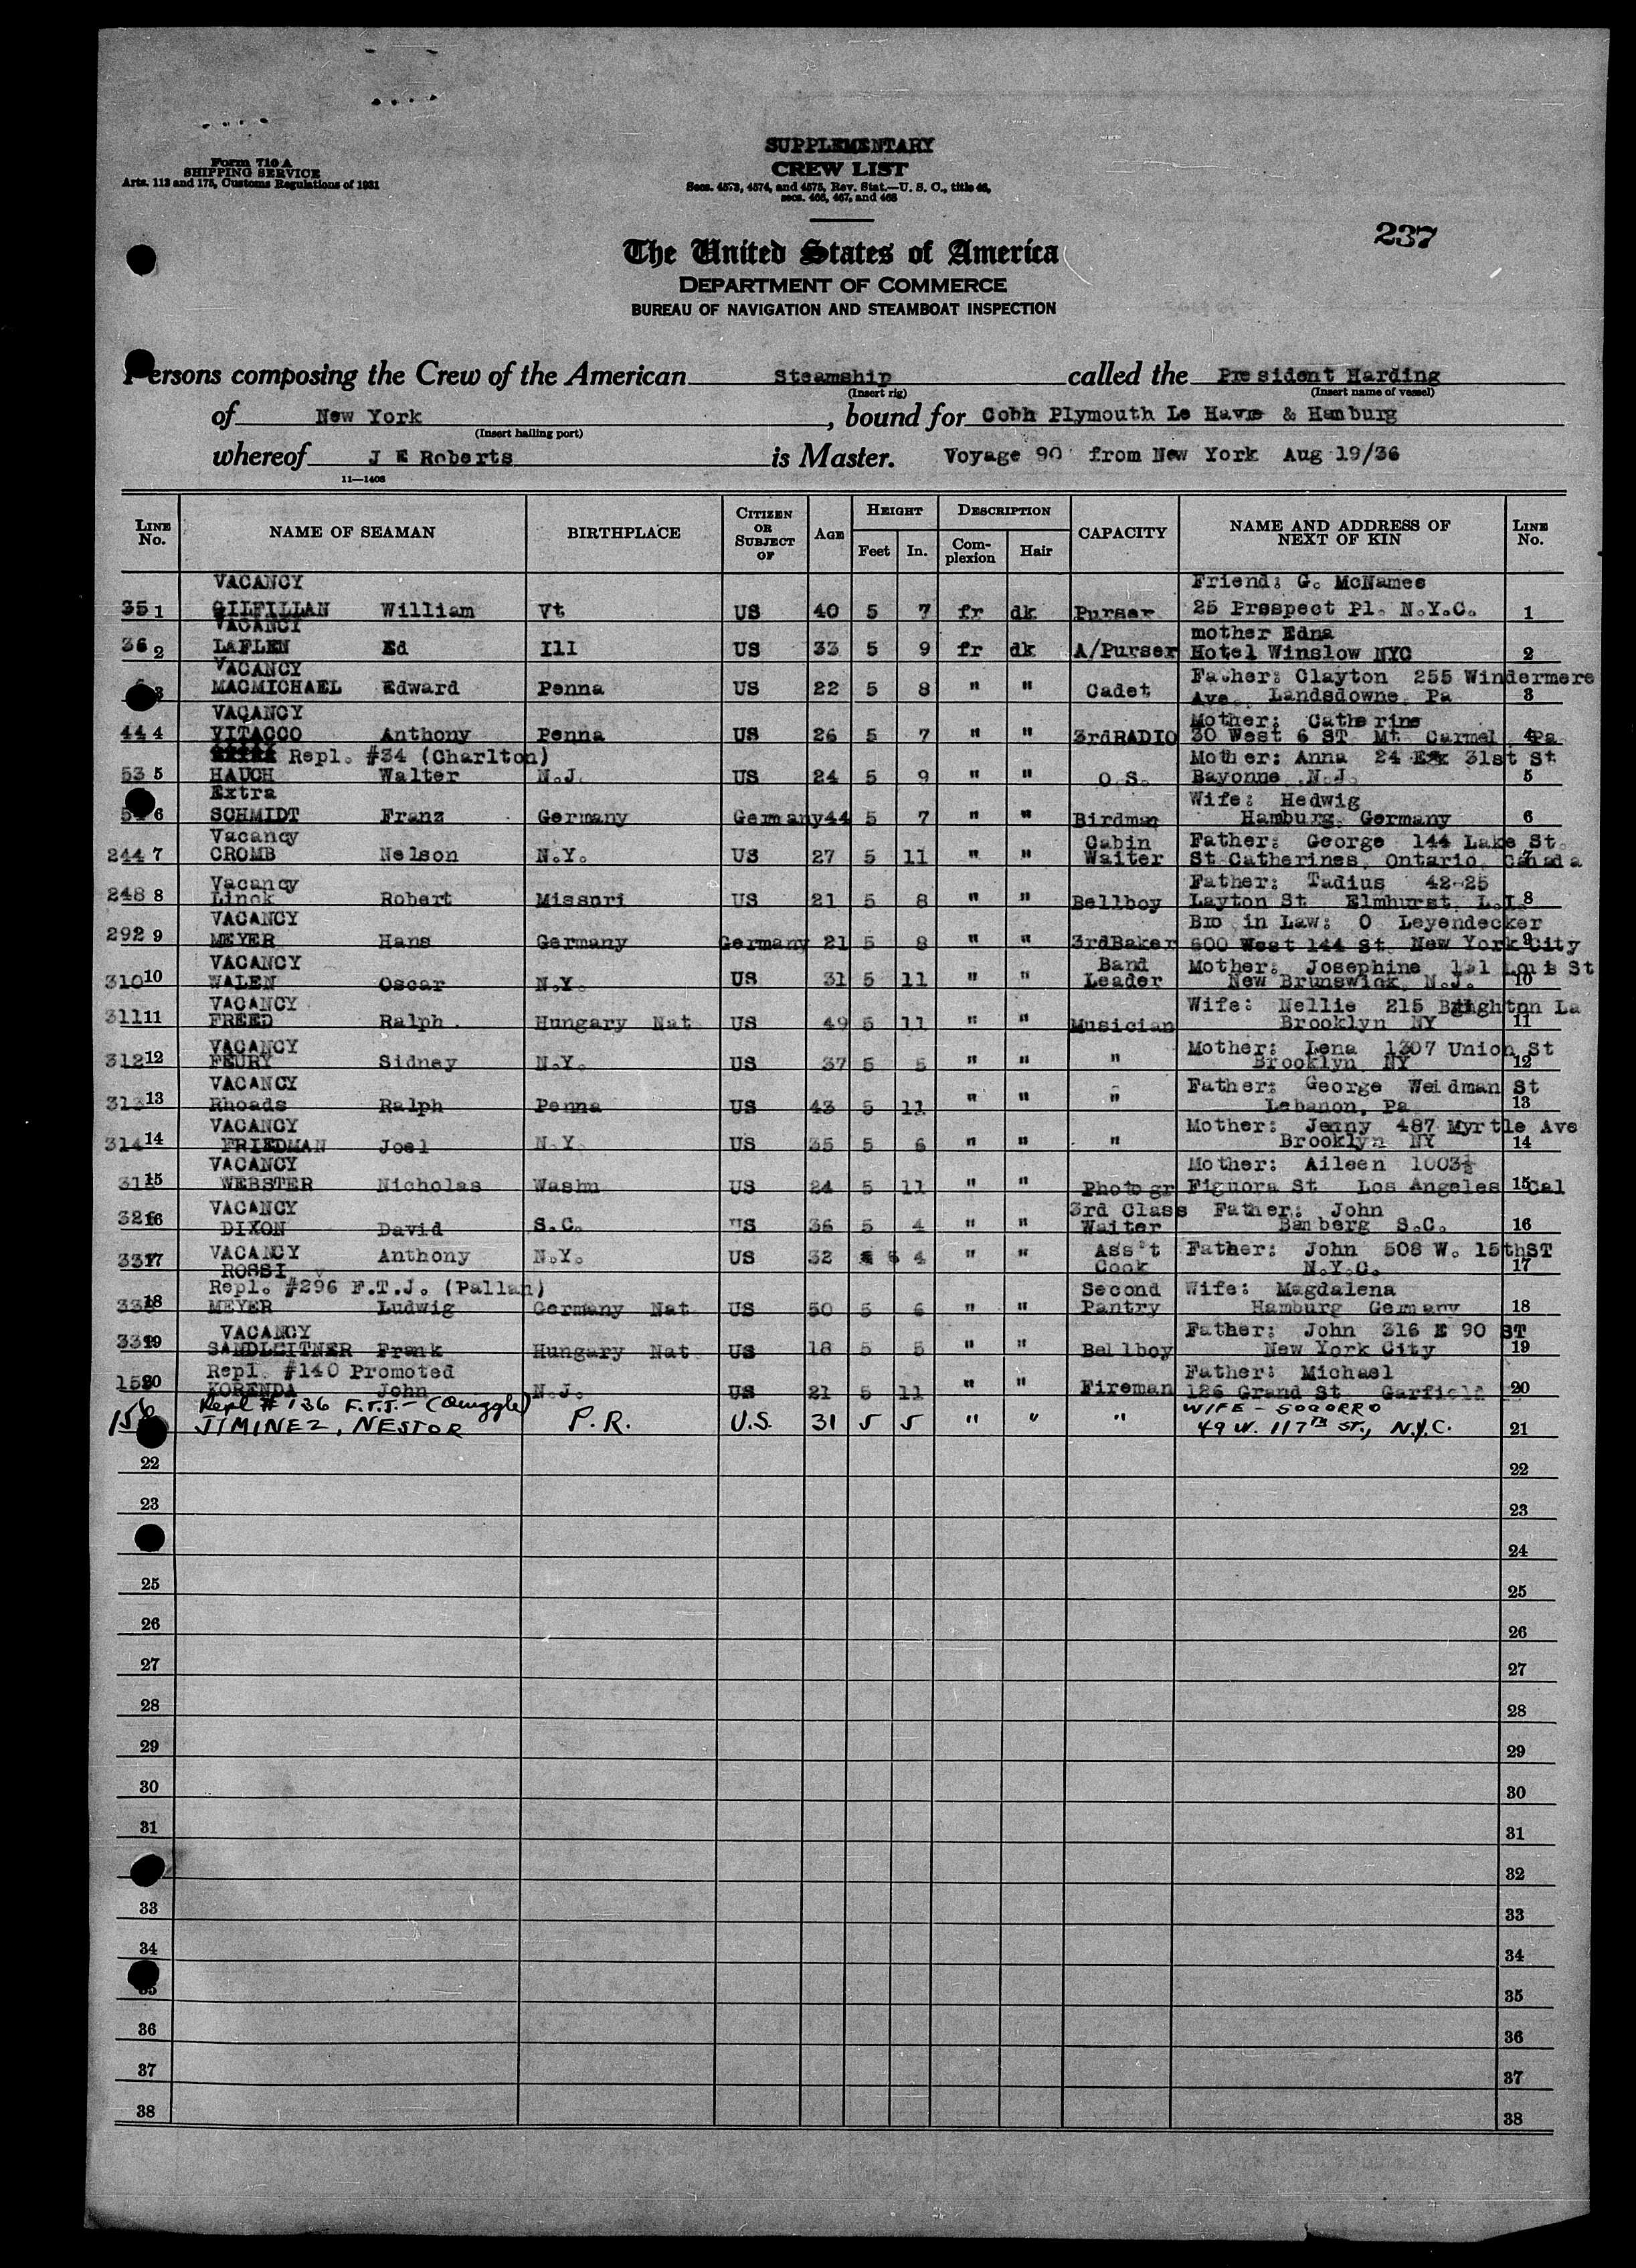 Form 710 A
SHIPPING SERVICE
Arts. 113 and 175, Customs Regulations of 1931
SUPPLEMENTARY
CREW LIST
Secs. 4573, 4574, and 4575, Rev. Stat.—U. S. C., title 46,
secs. 466, 467, and 468
237
The United States of America
DEPARTMENT OF COMMERCE
BUREAU OF NAVIGATION AND STEAMBOAT INSPECTION
Persons composing the Crew of the American Steamship called the President Harding
(Insert rig) (Insert name of vessel)
of New York , bound for Cobh Plymouth Le Havre & Hamburg
(Insert hailing port)
whereof J E Roberts is Master. Voyage 90 from New York Aug 19/36
11—1408
LINE No. NAME OF SEAMAN BIRTHPLACE CITIZEN OR SUBJECT OF AGE HEIGHT Feet In. DESCRIPTION Complexion Hair CAPACITY NAME AND ADDRESS OF NEXT OF KIN LINE No.
VACANCY Friend: G. McNamee
35 1 GILFILLAN William Vt US 40 5 7 fr dk Purser 25 Prospect Pl. N.Y.C. 1
VACANCY mother Edna
36 2 LAFLEN Ed Ill US 33 5 9 fr dk A/Purser Hotel Winslow NYC 2
VACANCY Father: Clayton 255 Windermere
3 MACMICHAEL Edward Penna US 22 5 8 " " Cadet Ave. Landsdowne, Pa 3
VACANCY Mother: Catherine
44 4 VITACCO Anthony Penna US 26 5 7 " " 3rdRADIO 30 West 6 ST Mt Carmel Pa 4
Repl. #34 (Charlton) Mother: Anna 24 E 31st St
53 5 HAUCH Walter N.J. US 24 5 9 " " O.S. Bayonne N.J. 5
Extra Wife: Hedwig
6 SCHMIDT Franz Germany Germany 44 5 7 " " Birdman Hamburg Germany 6
Vacancy Cabin Father: George 144 Lake St.
244 7 CROMB Nelson N.Y. US 27 5 11 " " Waiter St Catherines, Ontario, Canada 7
Vacancy Father: Tadius 42-25
248 8 Linck Robert Missouri US 21 5 8 " " Bellboy Layton St Elmhurst, L.I. 8
VACANCY Bro in Law: O Leyendecker
292 9 MEYER Hans Germany Germany 21 5 8 " " 3rdBaker 600 West 144 St New York City 9
VACANCY Band Mother: Josephine 131 Louis St
310 10 WALEN Oscar N.Y. US 31 5 11 " " Leader New Brunswick, N.J. 10
VACANCY Wife: Nellie 215 Brighton La
311 11 FREED Ralph Hungary Nat US 49 5 11 " " Musician Brooklyn NY 11
VACANCY Mother: Lena 1307 Union St
312 12 FEURY Sidney N.Y. US 37 5 5 " " " Brooklyn NY 12
VACANCY Father: George Weidman St
313 13 Rhoads Ralph Penna US 43 5 11 " " " Lebanon, Pa 13
VACANCY Mother: Jenny 487 Myrtle Ave
314 14 FRIEDMAN Joel N.Y. US 35 5 6 " " " Brooklyn NY 14
VACANCY Mother: Aileen 1003½
15 WEBSTER Nicholas Washn US 24 5 11 " " Photogr Figuora St Los Angeles Cal 15
VACANCY 3rd Class Father: John
16 DIXON David S.C. US 36 5 4 " " Waiter Bamberg S.C. 16
VACANCY Anthony N.Y. US 32 5 4 " " Ass't Father: John 508 W. 15thST
17 ROSSI Cook N.Y.C. 17
Repl. #296 F.T.J. (Pallan) Second Wife: Magdalena
18 MEYER Ludwig Germany Nat US 50 5 6 " " Pantry Hamburg Germany 18
VACANCY Father: John 316 E 90 ST
19 SANDLEITNER Frank Hungary Nat US 18 5 5 " " Bellboy New York City 19
Repl. #140 Promoted Father: Michael
20 KORENDA John N.J. US 21 5 11 " " Fireman 126 Grand St Garfield 20
Repl # 136 F.T.J. - (Quiggle) WIFE - SOCORRO
156 JIMINEZ, NESTOR P.R. U.S. 31 5 5 " " " 49 W. 117TH ST., N.Y.C. 21
22 22
23 23
24
25 25
26 26
27 27
28 28
29 29
30 30
31 31
32
33 33
34 34
35 35
36 36
37 37
38 38